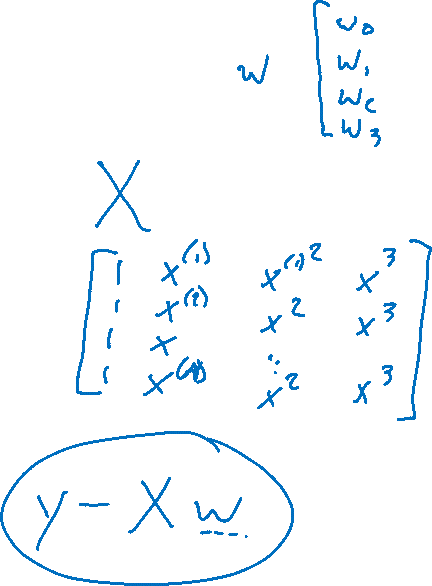 w [w₀
w₁
w₂
w₃
X
[1 x⁽¹⁾ x⁽¹⁾² x³]
1 x⁽²⁾ x² x³
1 x ⋮
1 x⁽ⁿ⁾ x² x³
y - X w